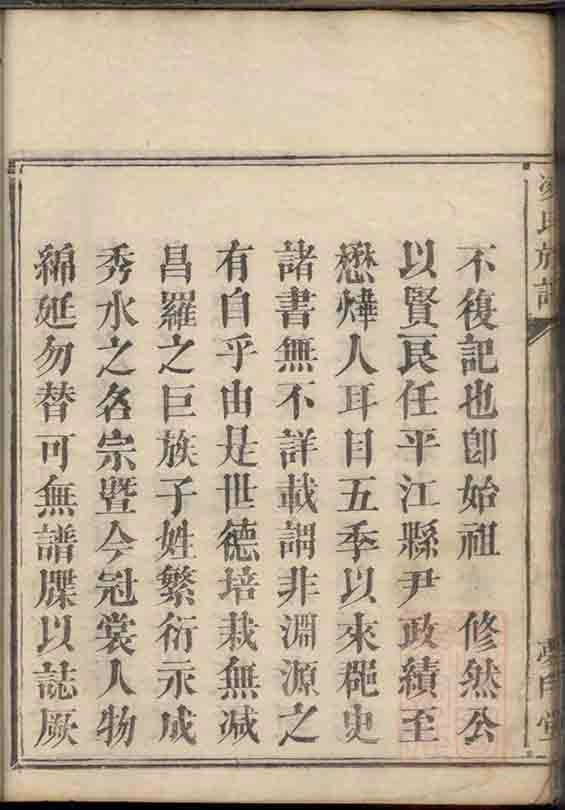 氏族譜
不復記也卽始祖　修然公
以賢良任平江縣尹政績至
懋燁人耳目五季以來郡史
諸書無不詳載謂非淵源之
有自乎由是世德培栽無减
昌羅之巨族子姓繁衍永成
秀水之名宗暨今冠裳人物
綿延勿替可無譜牒以誌厥